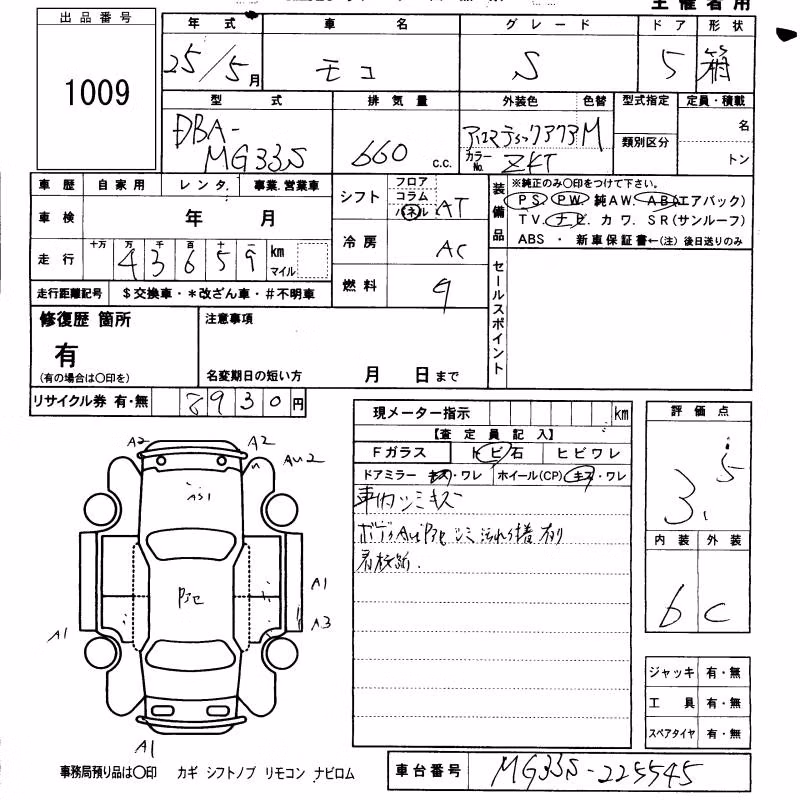 主催者用
出品番号
1009
年式 車名 グレード ドア 形状
25/5月 モコ S 5 箱
型式 排気量 外装色 色替 型式指定 定員・積載
DBA-MG33S 660 c.c. アロマティックアクアM 類別区分 名
カラーNo. ZKT トン
車歴 自家用 レンタ. 事業.営業車
車検 年 月
走行 十万 万 千 百 十 一 km マイル
4 3 6 5 9
走行距離記号 $交換車・*改ざん車・#不明車
シフト フロア コラム パネル AT
冷房 AC
燃料 g
装備品 ※純正のみ〇印をつけて下さい。
PS PW 純AW. AB(エアバック)
TV. ナビ. カワ. SR(サンルーフ)
ABS ・ 新車保証書←(注) 後日送りのみ
セールスポイント
修復歴 箇所 注意事項
有
(有の場合は〇印を) 名変期日の短い方 月 日まで
リサイクル券 有・無 8930円
現メーター指示 km
【査定員記入】
Fガラス トビ石 ヒビワレ
ドアミラー キズ・ワレ ホイール(CP) キズ・ワレ
車内シミキズ
評価点
3.5
内装 外装
b C
A2 A2 AU2
AS1
A1
A3
A1
A1
ジャッキ 有・無
工具 有・無
スペアタイヤ 有・無
事務局預り品は〇印 カギ シフトノブ リモコン ナビロム
車台番号 MG33S-225545